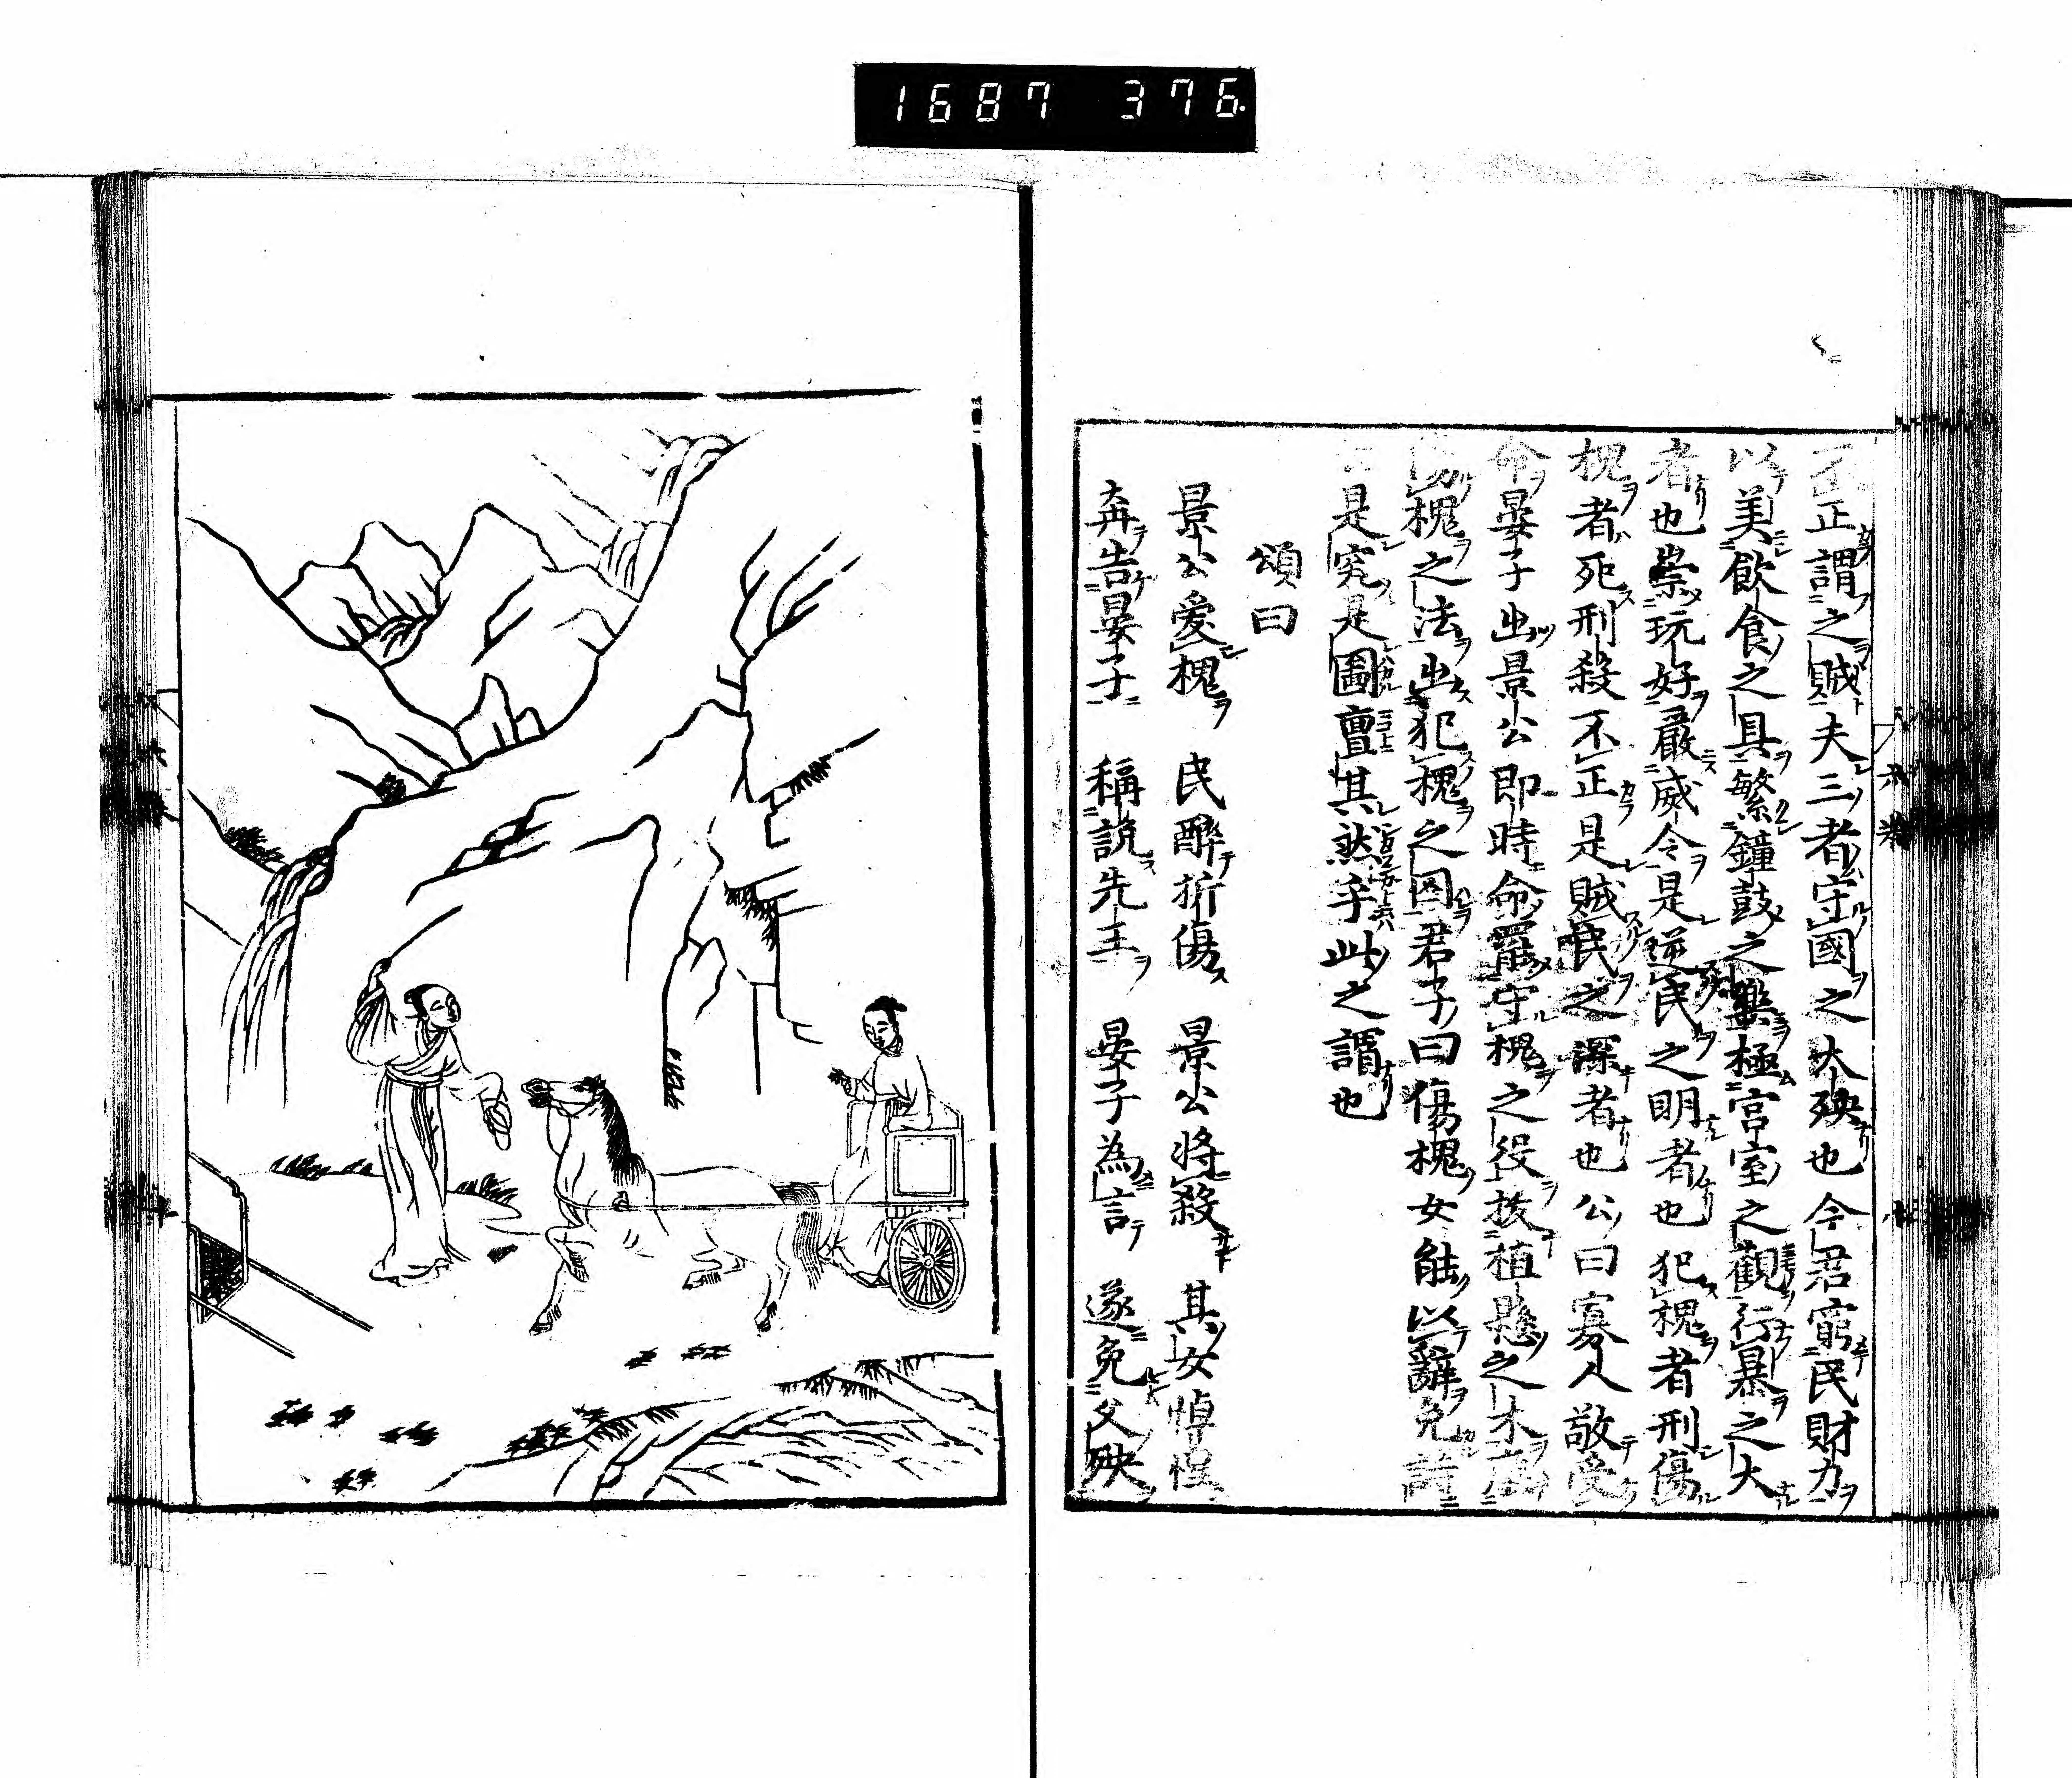 1687 376
不正謂之賊夫三者守國之大殃也今君窮民財力
以美飲食之具繁鐘鼓之樂極宮室之觀行暴之大
者也崇玩好嚴威令是逆民之明者也犯槐者刑傷
槐者死刑殺不正是賊民之深者也公曰寡人敬受
命晏子出景公即時命罷守槐之役拔植懸之木廢
傷槐之法出犯槐之囚君子曰傷槐女能以辭免詩
是究是圖亶其然乎此之謂也
頌曰
景公愛槐 民醉折傷 景公將殺 其女悼惶
奔告晏子 稱說先王 晏子為言 遂免父殃